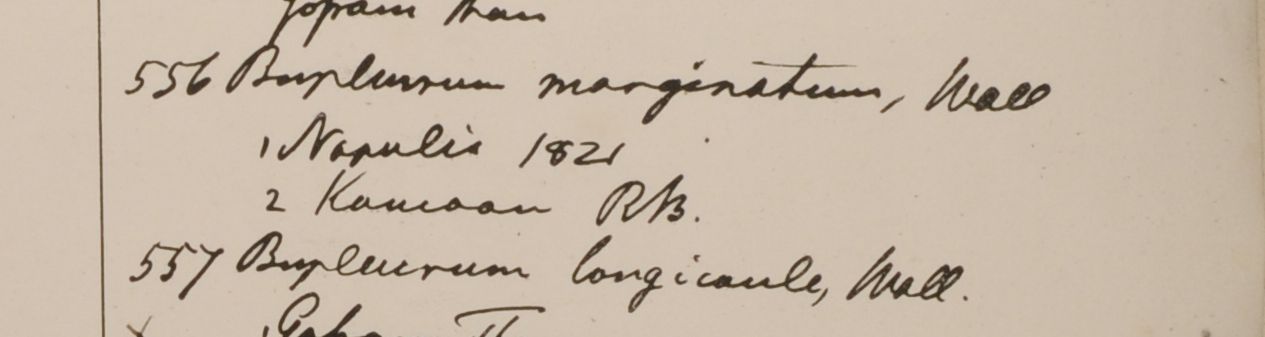 Gosain Than
556 Bupleurum marginatum, Wall
1 Napalia 1821
2 Kamaon RB.
557 Bupleurum longicaule, Wall.